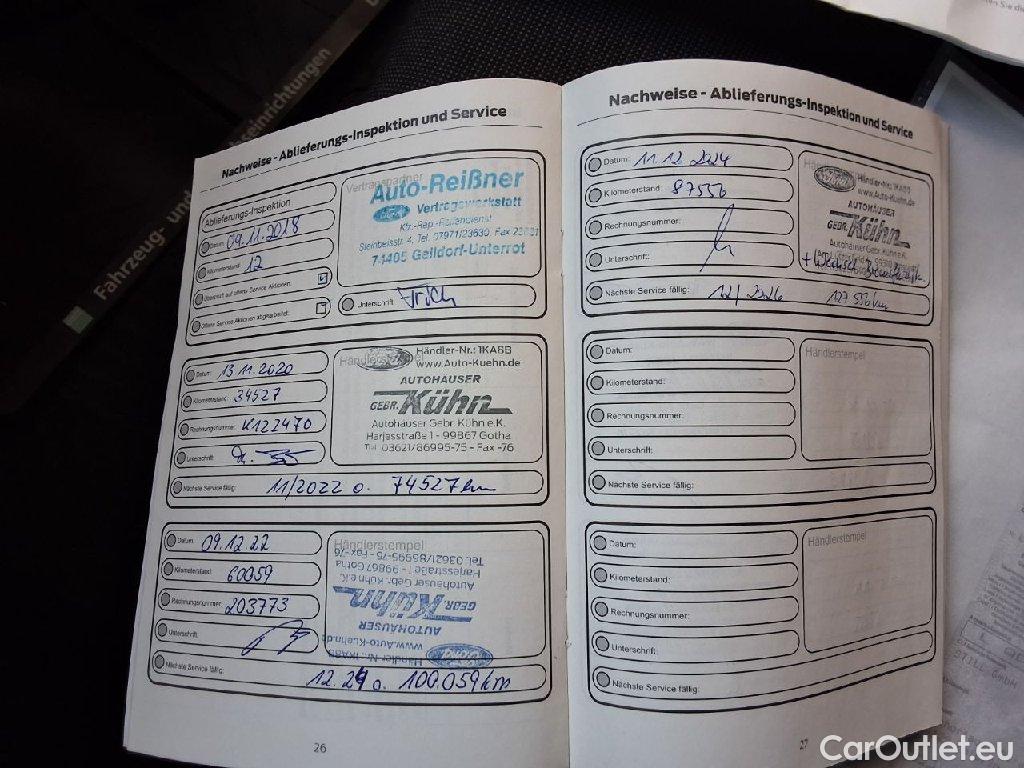 Fahrzeug- und
Nachweise - Ablieferungs-Inspektion und Service
Ablieferungs-Inspektion
Datum: 09.11.2018
Kilometerstand: 12
Vertragspartner
Auto-Reißner
Ford Vertragswerkstatt
Kfz.-Rep.-Reifendienst
Steinbeisstr. 4, Tel. 07971/23630, Fax 23631
74405 Gaildorf-Unterrot
Unterschrift:
Datum: 13.11.2020
Kilometerstand: 34527
Rechnungsnummer: K122470
Unterschrift:
Nächste Service fällig: 11/2022 o. 74527 km
Händlerstempel
Händler-Nr.: 1KABB
www.Auto-Kuehn.de
AUTOHÄUSER
GEBR. Kühn
Autohäuser Gebr. Kühn e.K.
Harjesstraße 1 - 99867 Gotha
Tel. 03621/86995-75 - Fax -76
Datum: 09.12.22
Kilometerstand: 60059
Rechnungsnummer: 203773
Unterschrift:
Nächste Service fällig: 12.24 o. 100 059 km
Händlerstempel
Tel. 03621/86995-75 - Fax -76
Harjesstraße 1 - 99867 Gotha
Autohäuser Gebr. Kühn e.K.
GEBR. Kühn
AUTOHÄUSER
www.Auto-Kuehn.de
Händler-Nr.: 1KABB
Ford
26
Nachweise - Ablieferungs-Inspektion und Service
Datum: 11.12.2024
Kilometerstand: 87556
Rechnungsnummer:
Unterschrift:
Nächste Service fällig: 12/2026
Händler-Nr.: 1KABB
www.Auto-Kuehn.de
AUTOHÄUSER
GEBR. Kühn
Autohäuser Gebr. Kühn e.K.
Datum:
Kilometerstand:
Rechnungsnummer:
Unterschrift:
Nächste Service fällig:
Händlerstempel
Datum:
Kilometerstand:
Rechnungsnummer:
Unterschrift:
Nächste Service fällig:
Händlerstempel
27
CarOutlet.eu